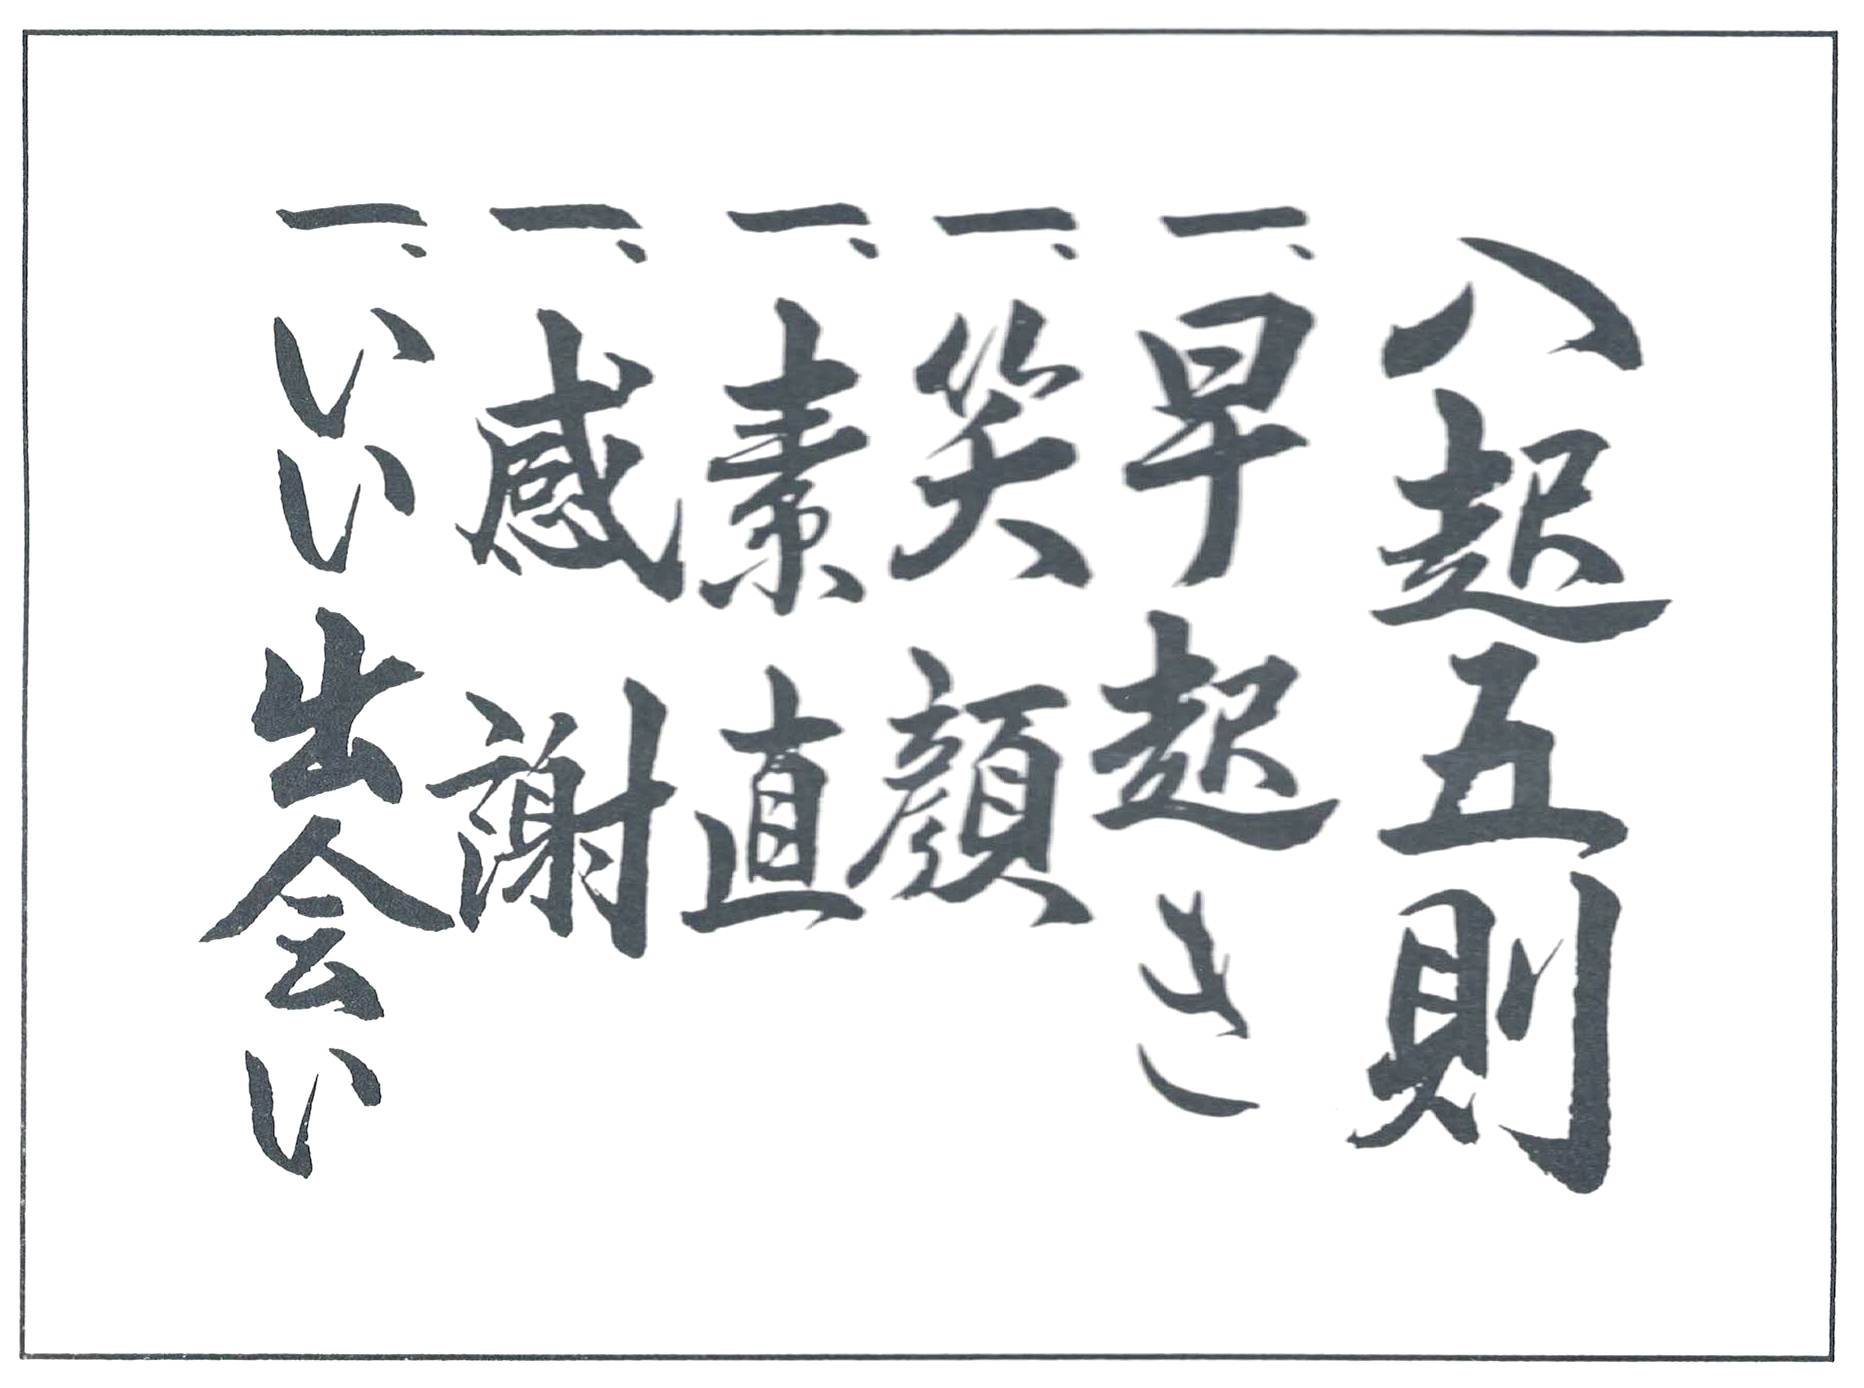 八起五則
一、早起き
一、笑顔
一、素直
一、感謝
一、いい出会い